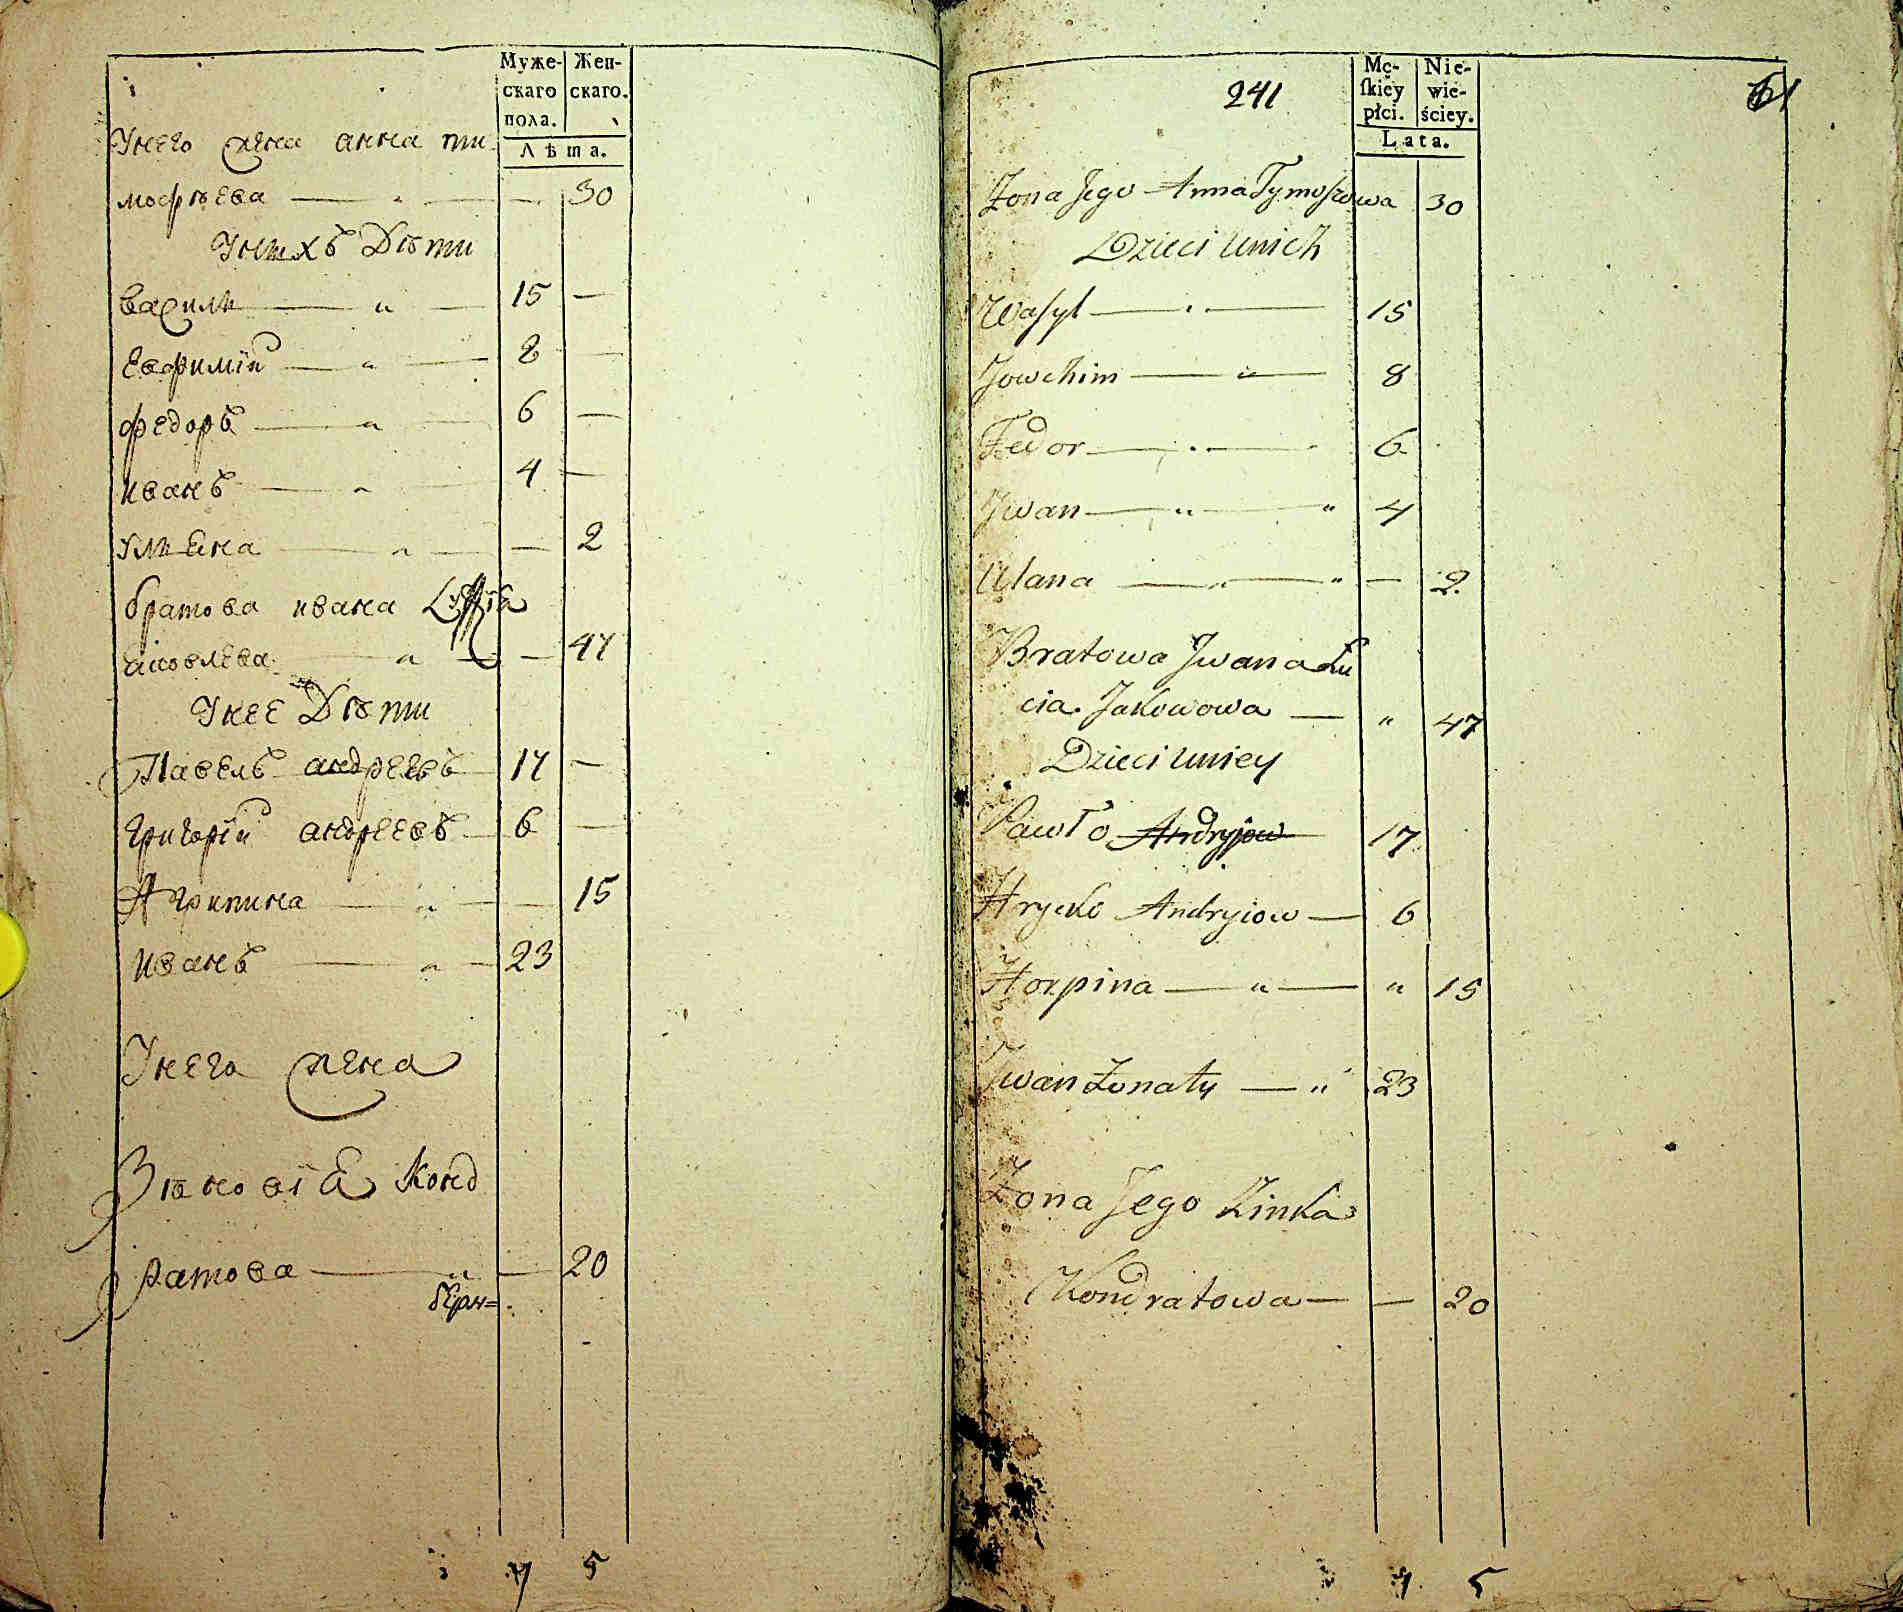 Муже-
скаго
пола.
Жен-
скаго.
Лѣта.
Унего жена анна ти
мофѣева — „ — — 30
Унихъ Дѣти
василий — „ — 15 —
Евфимїй — „ — 8 —
федоръ — „ — 6 —
иванъ — „ — 4 —
Ульяна — „ — — 2
братова ивана
Яковлева — „ — — 47
Унее Дѣти
Павелъ андреевъ 17 —
григорїй андреевъ — 6 —
Агрипина — „ — — 15
иванъ — „ — 23
Унего жена
Зѣновїя Конд
ратова — „ — 20
7 5
241
61
Mę-
skiey
płci.
Nie-
wie-
ściey.
Lata.
Żona Jego Anna Tymoszowa 30
Dzieci Unich
Wasyl — „ — 15
Jowchim — „ — 8
Fedor — „ — 6
Jwan — „ — „ 4
Ulana — „ — „ — 2
Bratowa Jwana Łu
cia Jakowowa — „ 47
Dzieci Uniey
Pawło Andryjow 17
Hryćko Andryiow — 6
Horpina — „ — „ 15
Jwan Żonaty — „ 23
Żona Jego Zinka
Kondratowa — — 20
7 5